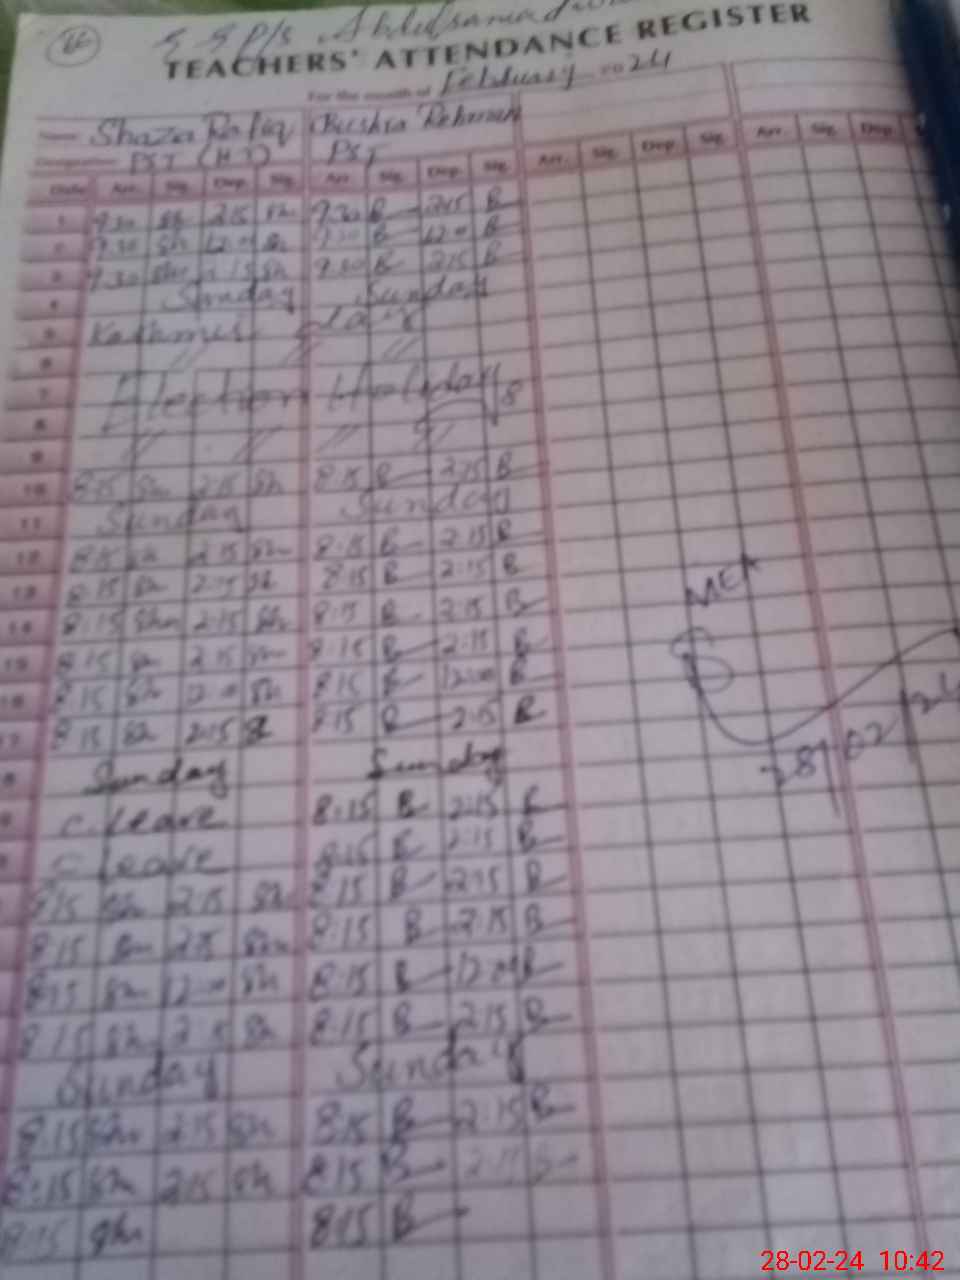 G G P/S Abdulsamad
TEACHERS' ATTENDANCE REGISTER
For the month of February 2024
Name Shaza Rafiq Bushra Rehman
Designation PST (HT) PST
Date Arr. Sig. Dep. Sig. Arr. Sig. Dep. Sig. Arr. Sig. Dep. Sig. Arr. Sig. Dep.
1 9.30 Sh 2:15 Sh 9.30 B 2:15 B
2 9.30 Sh 12:00 Sh 9.30 B 12:00 B
3 9.30 Sh 2:15 Sh 9.30 B 2:15 B
4 Sunday Sunday
5 Kashmir day
6 // // //
7 Election Holiday
8 8
9 // // //
10 8:15 Sh 2:15 Sh 8:15 B 2:15 B
11 Sunday Sunday
12 8:15 Sh 2:15 Sh 8:15 B 2:15 B
13 8:15 Sh 2:15 Sh 8:15 B 2:15 B
14 8:15 Sh 2:15 Sh 8:15 B 2:15 B
MEA
15 8:15 Sh 2:15 Sh 8:15 B 2:15 B
16 8:15 Sh 12:00 Sh 8:15 B 12:00 B
17 8:15 Sh 2:15 Sh 8:15 B 2:15 B
28/02/24
Sunday Sunday
C. Leave 8:15 B 2:15 B
C Leave 8:15 B 2:15 B
8:15 Sh 2:15 Sh 8:15 B 2:15 B
8:15 Sh 2:15 Sh 8:15 B 2:15 B
8:15 Sh 12:00 Sh 8:15 B 12:00 B
8:15 Sh 2:15 Sh 8:15 B 2:15 B
Sunday Sunday
8:15 Sh 2:15 Sh 8:15 B 2:15 B
8:15 Sh 2:15 Sh 8:15 B 2:15 B
8:15 Sh 8:15 B
28-02-24 10:42